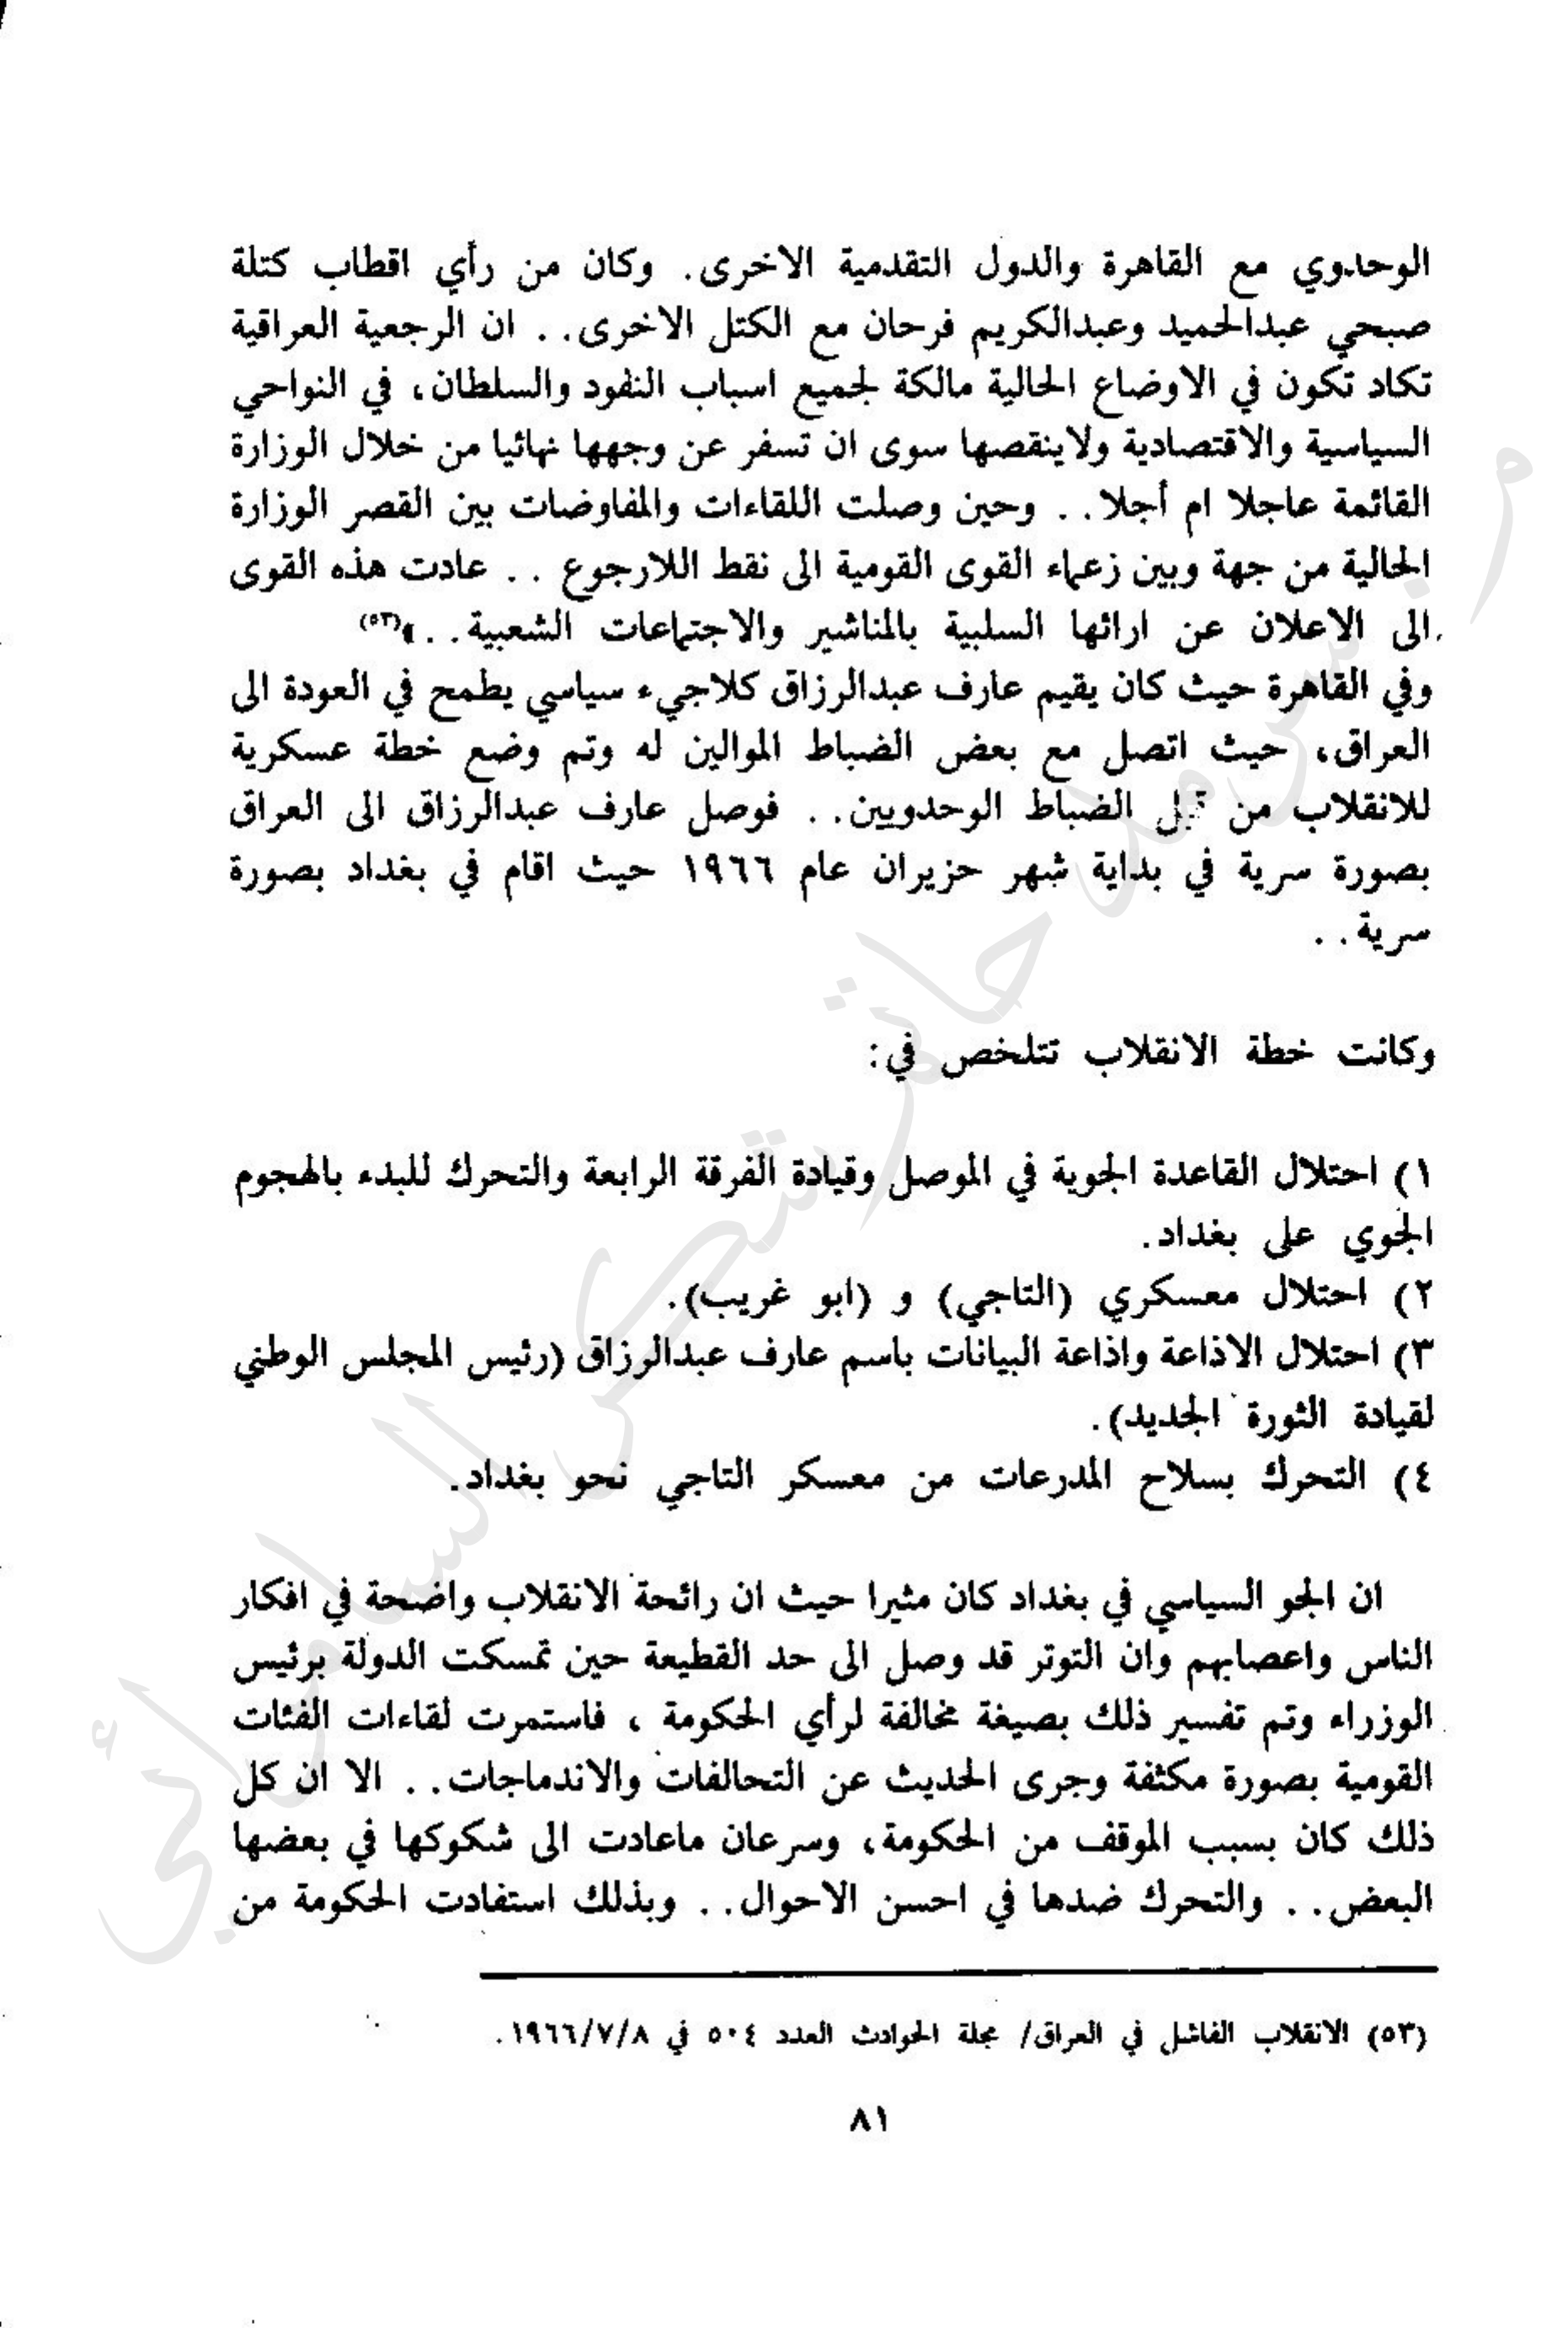 الوحدوي مع القاهرة والدول التقدمية الاخرى. وكان من رأي اقطاب كتلة
صبحي عبدالحميد وعبدالكريم فرحان مع الكتل الاخرى.. ان الرجعية العراقية
تكاد تكون في الاوضاع الحالية مالكة لجميع اسباب النفود والسلطان، في النواحي
السياسية والاقتصادية ولاينقصها سوى ان تسفر عن وجهها نهائيا من خلال الوزارة
القائمة عاجلا ام أجلا.. وحين وصلت اللقاءات والمفاوضات بين القصر الوزارة
الحالية من جهة وبين زعماء القوى القومية الى نقط اللارجوع .. عادت هذه القوى
الى الاعلان عن ارائها السلبية بالمناشير والاجتماعات الشعبية..»(٥٣)
وفي القاهرة حيث كان يقيم عارف عبدالرزاق كلاجيء سياسي يطمح في العودة الى
العراق، حيث اتصل مع بعض الضباط الموالين له وتم وضع خطة عسكرية
للانقلاب من قبل الضباط الوحدويين.. فوصل عارف عبدالرزاق الى العراق
بصورة سرية في بداية شهر حزيران عام ١٩٦٦ حيث اقام في بغداد بصورة
سرية..
وكانت خطة الانقلاب تتلخص في:
١) احتلال القاعدة الجوية في الموصل وقيادة الفرقة الرابعة والتحرك للبدء بالهجوم
الجوي على بغداد.
٢) احتلال معسكري (التاجي) و (ابو غريب).
٣) احتلال الاذاعة واذاعة البيانات باسم عارف عبدالرزاق (رئيس المجلس الوطني
لقيادة الثورة الجديد).
٤) التحرك بسلاح المدرعات من معسكر التاجي نحو بغداد.
ان الجو السياسي في بغداد كان مثيرا حيث ان رائحة الانقلاب واضحة في افكار
الناس واعصابهم وان التوتر قد وصل الى حد القطيعة حين تمسكت الدولة برئيس
الوزراء وتم تفسير ذلك بصيغة مخالفة لرأي الحكومة ، فاستمرت لقاءات الفئات
القومية بصورة مكثفة وجرى الحديث عن التحالفات والاندماجات.. الا ان كل
ذلك كان بسبب الموقف من الحكومة، وسرعان ماعادت الى شكوكها في بعضها
البعض.. والتحرك ضدها في احسن الاحوال.. وبذلك استفادت الحكومة من
(٥٣) الانقلاب الفاشل في العراق/ مجلة الحوادث العدد ٥٠٤ في ١٩٦٦/٧/٨.
٨١